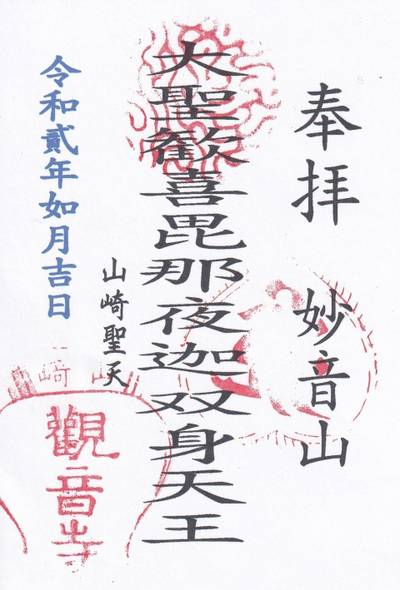 奉拝 妙音山
大聖歓喜毘那夜迦双身天王
山崎聖天
令和貳年如月吉日
山崎
觀音寺